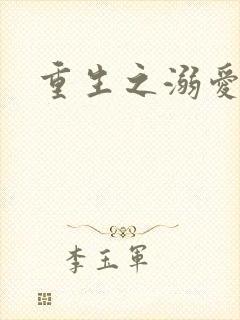 重生之溺愛
李玉軍